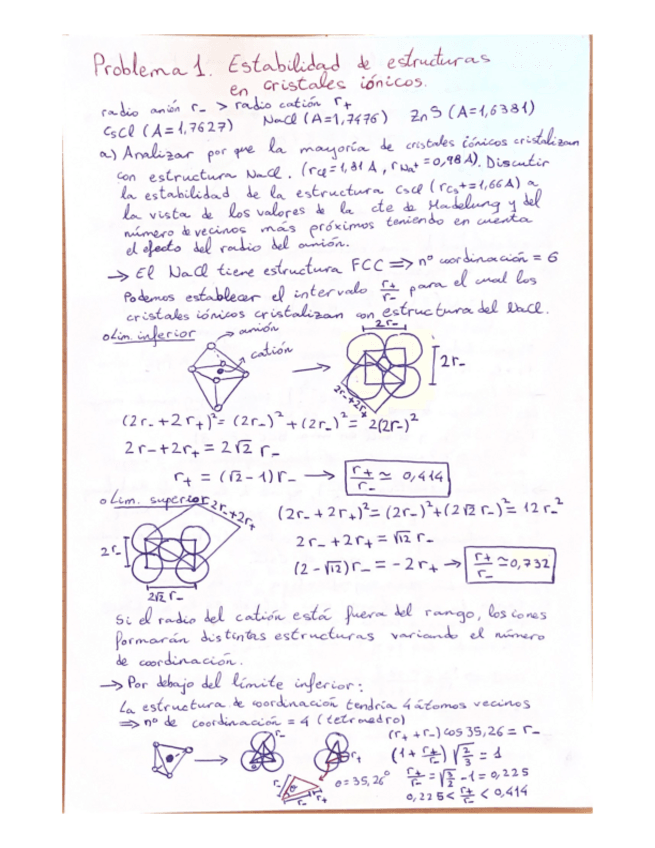 Problema 1. Estabilidad de estructuras
en cristales iónicos.
radio anión r₋ > radio catión r₊
CsCl (A=1,7627) NaCl (A=1,7476) ZnS (A=1,6381)
a) Analizar por que la mayoría de cristales iónicos cristalizan
con estructura NaCl. (rCl⁻=1,81 A, rNa⁺=0,98 A). Discutir
la estabilidad de la estructura CsCl (rCs⁺=1,66 A) a
la vista de los valores de la cte de Madelung y del
número de vecinos más próximos teniendo en cuenta
el efecto del radio del anión.
→ El NaCl tiene estructura FCC ⟹ nº coordinación = 6
Podemos establecer el intervalo r₊/r₋ para el cual los
cristales iónicos cristalizan con estructura del NaCl.
o Lim. inferior
anión
catión
2r₋
2r₋
2r₋+2r₊
(2r₋+2r₊)²=(2r₋)²+(2r₋)²=2(2r₋)²
2r₋+2r₊=2√2 r₋
r₊=(√2-1)r₋ → r₊/r₋ ≃ 0,414
o Lim. superior
2r₋+2r₊
2r₋
2√2 r₋
(2r₋+2r₊)²=(2r₋)²+(2√2 r₋)²=12r₋²
2r₋+2r₊=√12 r₋
(2-√12)r₋=-2r₊ → r₊/r₋ ≃0,732
Si el radio del catión está fuera del rango, los iones
formarán distintas estructuras variando el número
de coordinación.
→ Por debajo del límite inferior:
La estructura de coordinación tendría 4 átomos vecinos
⟹ nº de coordinación = 4 (tetraedro)
r₋
r₊
r₋
θ
r₋ r₊
θ=35,26°
(r₊+r₋)cos 35,26=r₋
(1+r₊/r₋)√2/3=1
r₊/r₋=√3/2-1=0,225
0,225<r₊/r₋<0,414